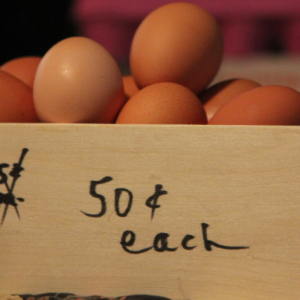 50¢
each